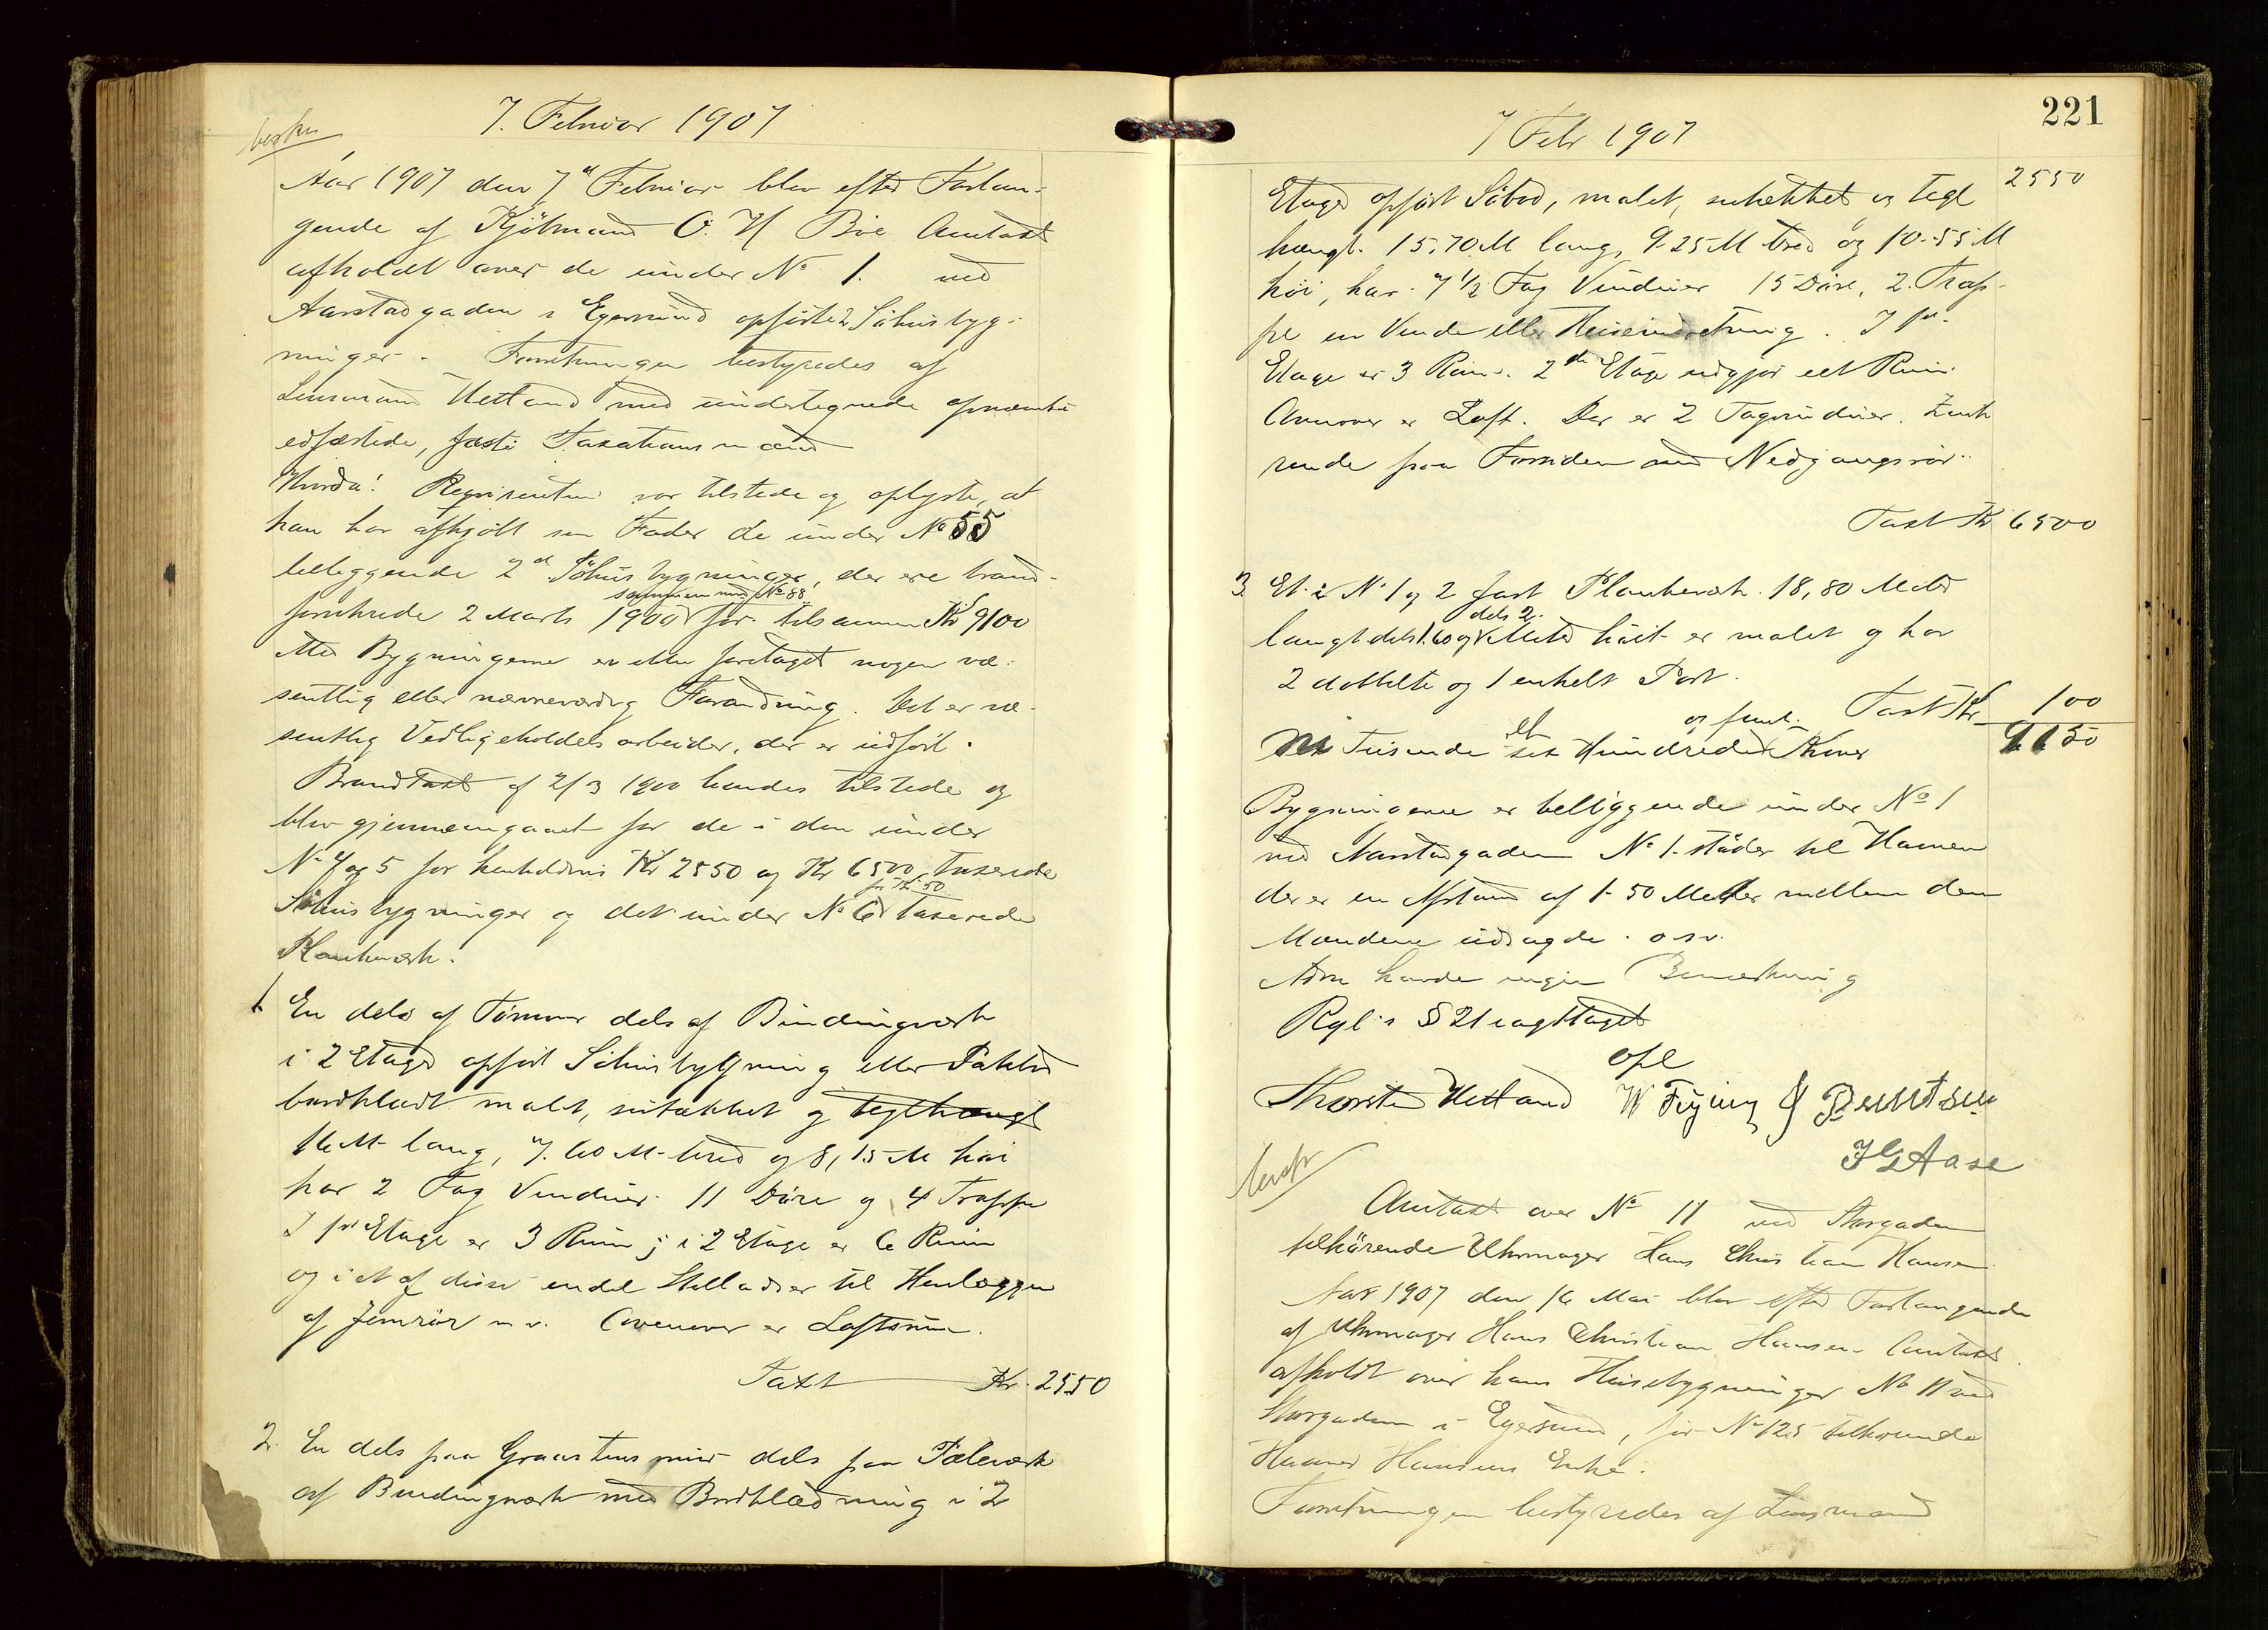 7. Februar 1907
Aar 1907 den 7de Februar blev efter Forlan-
gende af Kjöbmand O. H Böe Omtaxt
afholdt over de under No 1. ved
Aarstadgaden i Egersund opförte 2 Söhusbyg-
ninger. Forretningen bestyredes af
Lensmand Hetland med undertegnede opnævnte
edfæstede, faste Taxationsmænd
Hvorda! Requirenten var tilstede og oplyste, at
han har afkjöbt sin Fader de under No 55
beliggende 2de Söhusbygninger, der ere brand-
sammen med No 88
forsikrede 2 Marts 1900 for tilsammen Kr 9100
Med Bygningerne er ikke foretaget nogen væ-
sentlig eller nævneværdig Forandring. Det er væ-
sentlig Vedligeholdelsarbeider, der er udfört.
Brandtaxt af 2/3 1900 havdes tilstede og
blev gjennemgaaet for de i den under
No 4 og 5 for henholdsvis Kr 2550 og Kr 6500 taxerede
for Kr 50
Söhusbygninger og det under No 6 taxerede
Plankeværk.
1 En dels af Tömmer dels af Bindingværk
i 2 Etager opfört Söhusbygning eller Pakbod
bordklædt malet, sutækket og teglhængt
16 M lang, 7.60 M bred og 8,15 M höi
har 2 Fag Vinduer 11 Döre og 4 Trapper
I 1ste Etage er 3 Rum; i 2 Etage er 6 Rum
og i et af disse endel Stelladser til Henlæggen
af Jernrör m. v. Ovenover er Loftsrum.
Taxt Kr. 2550
2. En dels paa Graastensmur dels paa Pæleværk
af Bindingværk med Bordklædning i 2
221
7 Febr 1907
2550
Etager opfört Söbod, malet, sutækket og tegl
hængt. 15,70 M lang, 9.25 M bred og 10.55 M
höi, har 7 1/2 Fag Vinduer 15 Döre, 2 Trap-
per en Vinde eller Heiseindretning. I 1ste
Etage er 3 Rum. 2den Etage udgjör eet Rum
Ovenover er Loft. Der er 2 Tagvinduer. Zink
rende paa Forsiden med Nedgangsrör.
Taxt Kr 6500
3. Et i No 1 og 2 fast Plankeværk 18,80 Meter
dels 2
langt dels 1.60 og Meter höit er malet og har
2 dobbelte og 1 enkelt Port.
Taxt Kr 100
et og femt.
Ni Tusende Hundrede Kroner 9150
Bygningerne er beliggende under No 1
ved Aarstadgaden No 1 stöder til Havnen
der er en Afstand af 1.50 Meter mellem dem
Mændene udsagde o. s. v.
havde ingen Bemærkning
Rgl.s § 21 iagttaget
opl
Thorsten Hetland W Feyling J Berntsen
J G Aase
Omtaxt over No 11 ved Storgaden
tilhörende Uhrmager Hans Christian Hansen
Aar 1907 den 16 Mai blev efter Forlangende
af Uhrmager Hans Christian Hansen Omtaxt
afholdt over hans Husebygninger No 11 ved
Storgaden i Egersund, för No 125 tilhörende
Hansens Enke.
Forretningen bestyredes af Lensmand